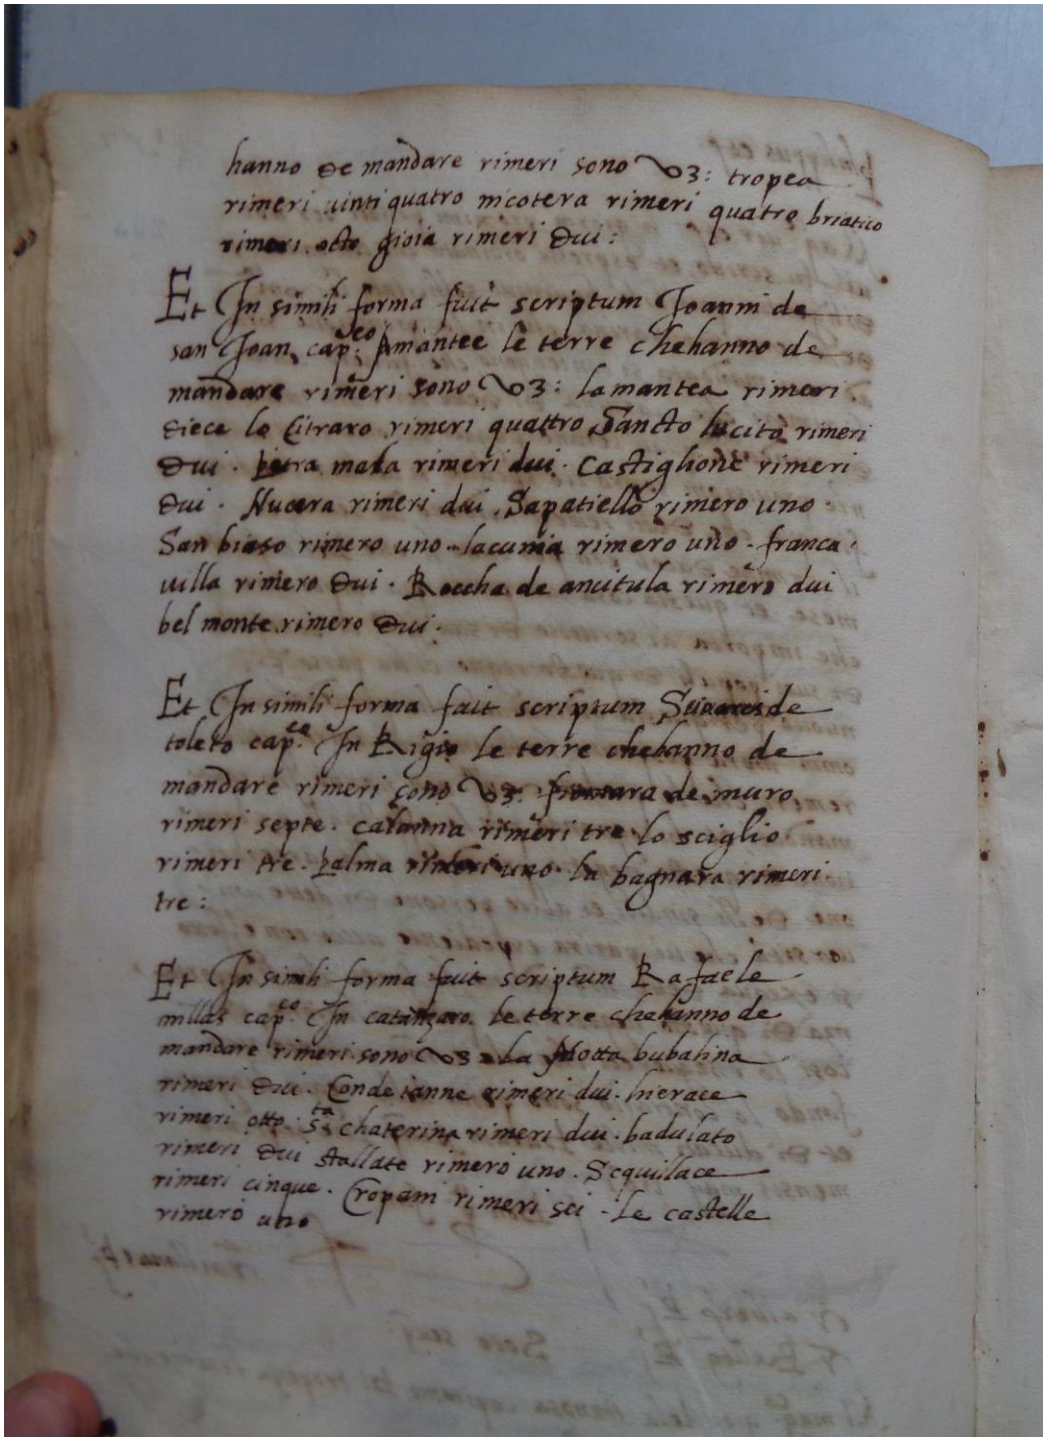 hanno de mandare rimeri sono vz: tropea
rimeri uinti quatro nicotera rimeri quatro briatico
rimeri octo gioia rimeri dui:
Et In simili forma fuit scriptum Joanni de
san Joan cap.eo Amantee le terre che hanno de
mandare rimeri sono vz: la mantea rimeri
diece lo Citraro rimeri quattro Sancto lucito rimeri
dui. petra mala rimeri dui. Castiglione rimeri
dui. Nucera rimeri dui. Sapatiello rimero uno.
San biaso rimero uno. lacunia rimero uno. franca
uilla rimero dui. Roccha de anitula rimero dui
bel monte rimero dui.
Et In simili forma fuit scriptum Suarez de
toleto cap.eo In Rigio le terre che hanno de
mandare rimeri sono vz. fiomara de muro
rimeri septe. calanna rimeri tre lo sciglio
rimeri tre. palma rimeri uno. la bagnara rimeri
tre:
Et In simili forma fuit scriptum Rafaele
millas cap.eo In catanzaro. le terre che hanno de
mandare rimeri sono vz. La Motta bubalina
rimeri dui. Condeianne rimeri dui. hierace
rimeri otto. s.ta chaterina rimeri dui. badulato
rimeri dui stallate rimero uno. Sequillace
rimeri cinque. Cropani rimeri sei. le castelle
rimero uno